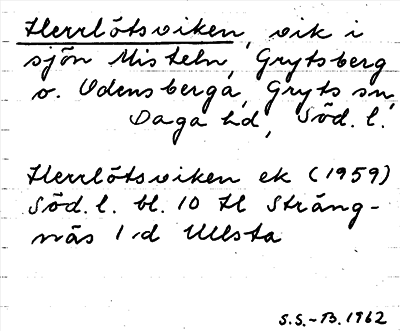 Herrlötsviken, vik i
sjön Misteln, Grytsberg
o. Odensberga, Gryts sn,
Daga hd, Söd. l.
Herrlötsviken ek (1959)
Söd. l. bl. 10 H Sträng-
näs 1 d Ullsta
S.S.-B. 1962